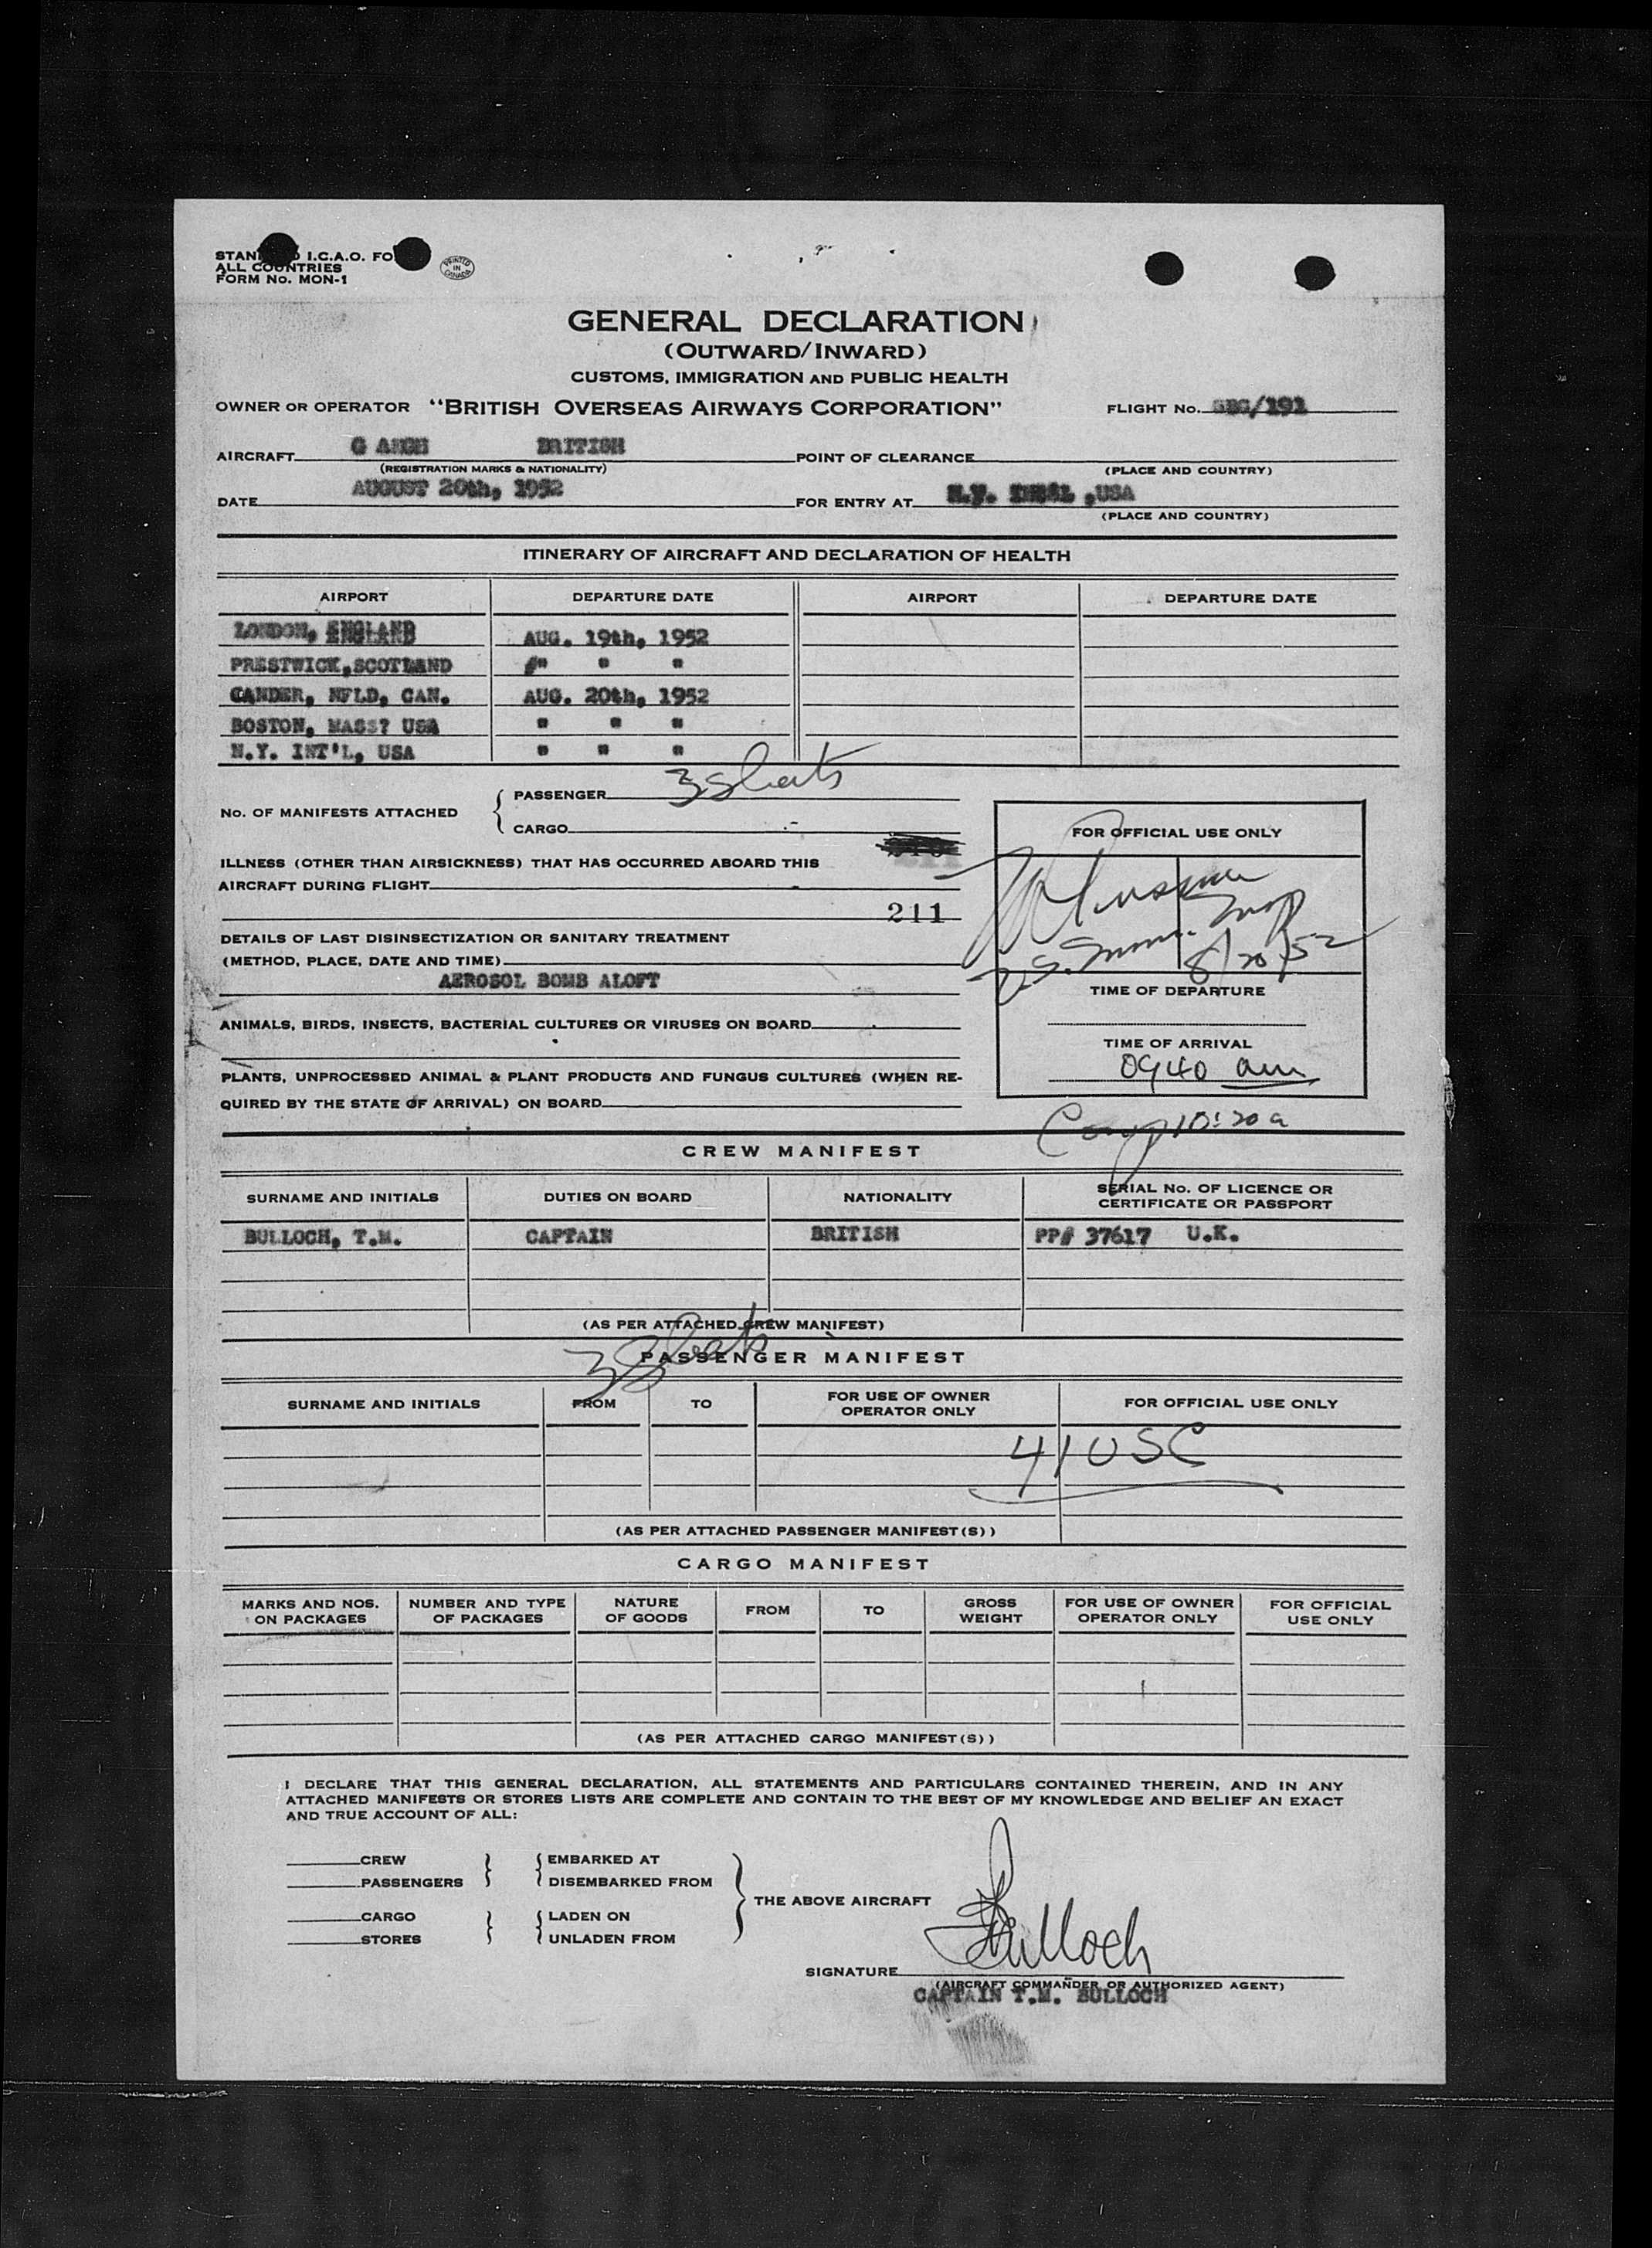 STAN I.C.A.O. FO
ALL COUNTRIES
FORM No. MON-1
PRINTED IN CANADA
GENERAL DECLARATION
(OUTWARD/INWARD)
CUSTOMS, IMMIGRATION AND PUBLIC HEALTH
OWNER OR OPERATOR "BRITISH OVERSEAS AIRWAYS CORPORATION" FLIGHT No. /191
AIRCRAFT G BRITISH POINT OF CLEARANCE
(REGISTRATION MARKS & NATIONALITY) (PLACE AND COUNTRY)
DATE AUGUST 20th, 1952 FOR ENTRY AT N.Y. ,USA
(PLACE AND COUNTRY)
ITINERARY OF AIRCRAFT AND DECLARATION OF HEALTH
AIRPORT DEPARTURE DATE AIRPORT DEPARTURE DATE
LONDON, ENGLAND AUG. 19th, 1952
PRESTWICK,SCOTLAND " " "
GANDER, NFLD, CAN. AUG. 20th, 1952
BOSTON, MASS? USA " " "
N.Y. INT'L, USA " " "
No. OF MANIFESTS ATTACHED { PASSENGER 3 Sheets
CARGO -
ILLNESS (OTHER THAN AIRSICKNESS) THAT HAS OCCURRED ABOARD THIS
AIRCRAFT DURING FLIGHT -
211
DETAILS OF LAST DISINSECTIZATION OR SANITARY TREATMENT
(METHOD, PLACE, DATE AND TIME)
AEROSOL BOMB ALOFT
ANIMALS, BIRDS, INSECTS, BACTERIAL CULTURES OR VIRUSES ON BOARD
PLANTS, UNPROCESSED ANIMAL & PLANT PRODUCTS AND FUNGUS CULTURES (WHEN RE-
QUIRED BY THE STATE OF ARRIVAL) ON BOARD
FOR OFFICIAL USE ONLY
U.S. Imm. Insp
8/20/52
TIME OF DEPARTURE
TIME OF ARRIVAL
0940 am
10:20 a
CREW MANIFEST
SURNAME AND INITIALS DUTIES ON BOARD NATIONALITY SERIAL No. OF LICENCE OR CERTIFICATE OR PASSPORT
BULLOCH, T.M. CAPTAIN BRITISH PP# 37617 U.K.
(AS PER ATTACHED CREW MANIFEST)
3 Sheets
PASSENGER MANIFEST
SURNAME AND INITIALS FROM TO FOR USE OF OWNER OPERATOR ONLY FOR OFFICIAL USE ONLY
41 USC
(AS PER ATTACHED PASSENGER MANIFEST(S))
CARGO MANIFEST
MARKS AND NOS. ON PACKAGES NUMBER AND TYPE OF PACKAGES NATURE OF GOODS FROM TO GROSS WEIGHT FOR USE OF OWNER OPERATOR ONLY FOR OFFICIAL USE ONLY
(AS PER ATTACHED CARGO MANIFEST(S))
I DECLARE THAT THIS GENERAL DECLARATION, ALL STATEMENTS AND PARTICULARS CONTAINED THEREIN, AND IN ANY
ATTACHED MANIFESTS OR STORES LISTS ARE COMPLETE AND CONTAIN TO THE BEST OF MY KNOWLEDGE AND BELIEF AN EXACT
AND TRUE ACCOUNT OF ALL:
CREW EMBARKED AT
PASSENGERS DISEMBARKED FROM
THE ABOVE AIRCRAFT
CARGO LADEN ON
STORES UNLADEN FROM
SIGNATURE Bulloch
(AIRCRAFT COMMANDER OR AUTHORIZED AGENT)
CAPTAIN T.M. BULLOCH